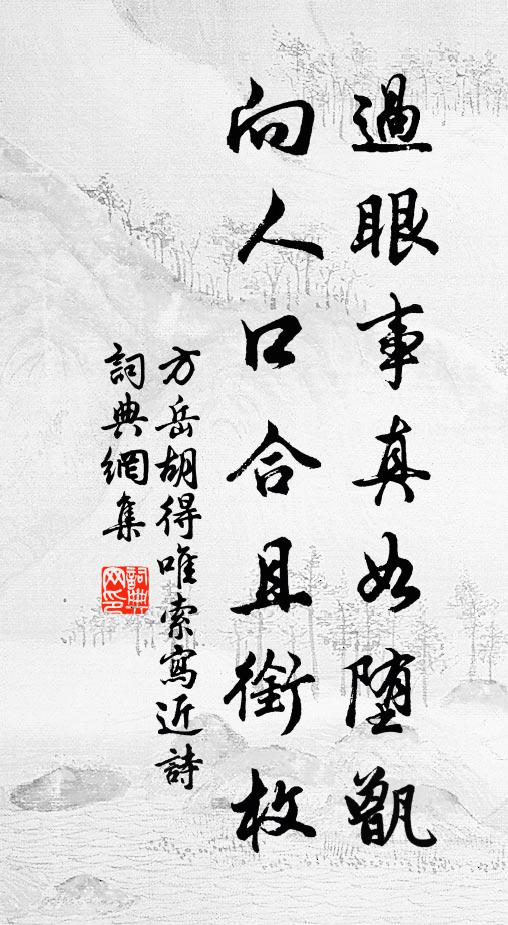 過眼事真如堕甑
向人口合且銜枚
方岳胡得唯索寫近詩
詞典網集
詞典網印